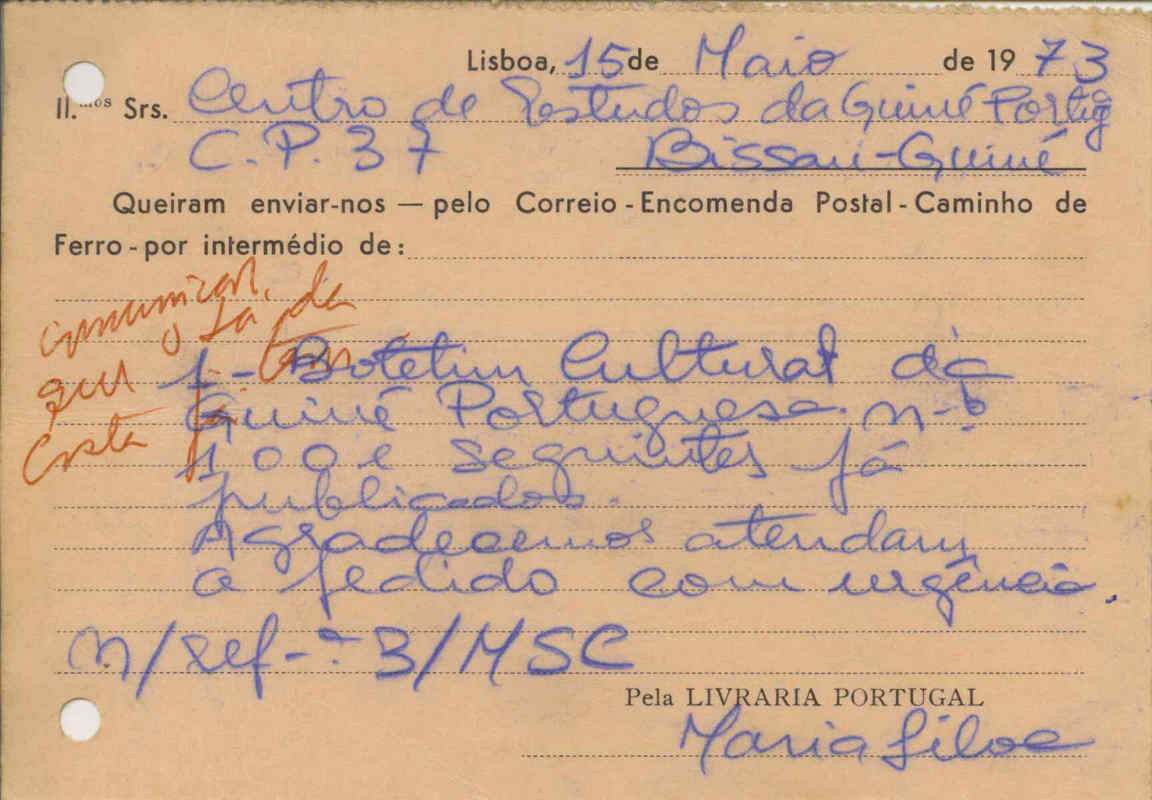 Lisboa, 15 de Maio de 1973
Il.mos Srs. Centro de Estudos da Guiné Portug
C.P. 37 Bissau-Guiné
Queiram enviar-nos — pelo Correio - Encomenda Postal - Caminho de
Ferro - por intermédio de:
comunicar
que o
Costa já
1 - Boletim Cultural da
Guiné Portuguesa n-º
100 e seguintes já
publicados.
Agradecemos atendam
o pedido com urgência.
n/ref-ª 3/MSC
Pela LIVRARIA PORTUGAL
Maria Silva